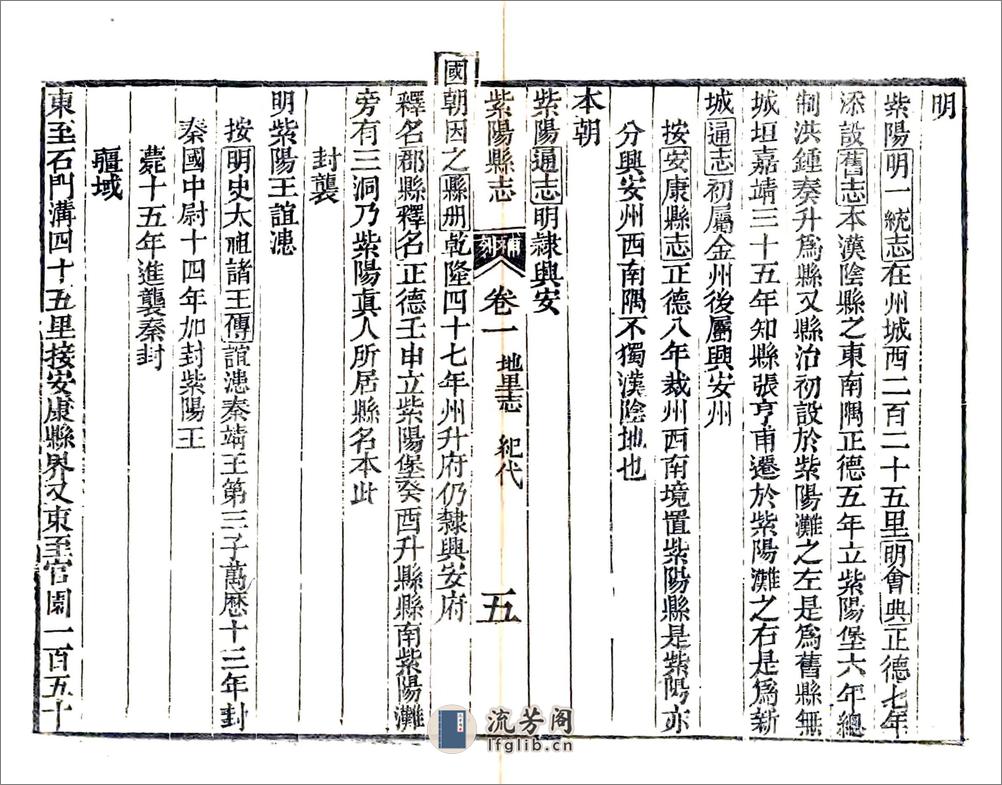 明
紫陽明一統志在州城西二百二十五里明會典正德七年
添設舊志本漢陰縣之東南隅正德五年立紫陽堡六年總
制洪鍾奏升爲縣又縣治初設於紫陽灘之左是爲舊縣無
城垣嘉靖三十五年知縣張亨甫遷於紫陽灘之右是爲新
城通志初屬金州後屬興安州
按安康縣志正德八年裁州西南境置紫陽縣是紫陽亦
分興安州西南隅不獨漢陰地也
本朝
紫陽通志明隸興安
紫陽縣志 補刻 卷一 地里志 紀代 五
國朝因之縣册乾隆四十七年州升府仍隸興安府
釋名郡縣釋名正德壬申立紫陽堡癸酉升縣縣南紫陽灘
旁有三洞乃紫陽眞人所居縣名本此
封襲
明紫陽王誼漶
按明史太祖諸王傳誼漶秦靖王第三子萬曆十三年封
秦國中尉十四年加封紫陽王
薨十五年進襲秦封
疆域
東至石門溝四十五里接安康縣界又東至官園一百五十
流芳阁
lfglib.cn